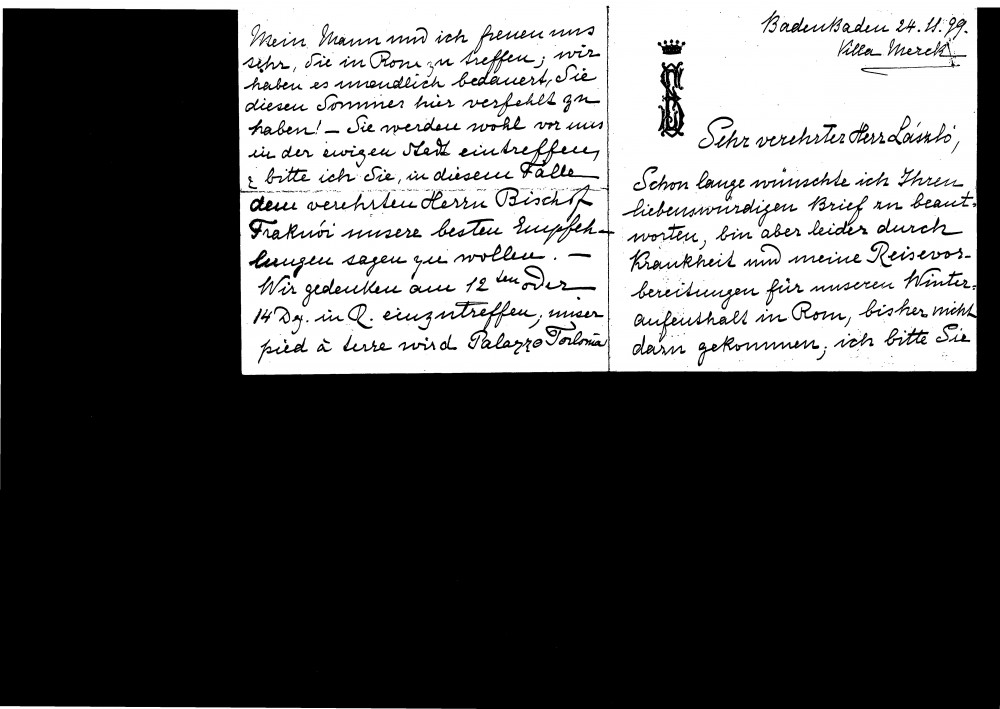 BadenBaden 24.11.99.
Villa Merck
Sehr verehrter Herr László,
Schon lange wünschte ich Ihren
liebenswürdigen Brief zu beant-
worten, bin aber leider durch
Krankheit und meine Reisevor-
bereitungen für unseren Winter-
aufenthalt in Rom, bisher nicht
darn gekommen; ich bitte Sie
Mein Mann und ich freuen uns
sehr, Sie in Rom zu treffen; wir
haben es unendlich bedauert, Sie
diesen Sommer hier verfehlt zu
haben! – Sie werden wohl vor uns
in der ewigen Stadt eintreffen,
& bitte ich Sie, in diesem Falle
dem verehrten Herrn Bischof
Fraknói unsere besten Empfeh-
lungen sagen zu wollen. –
Wir gedenken am 12ten oder
14 Dz. in R. einzutreffen; unser
pied à terre wird Palazzo Torlonia